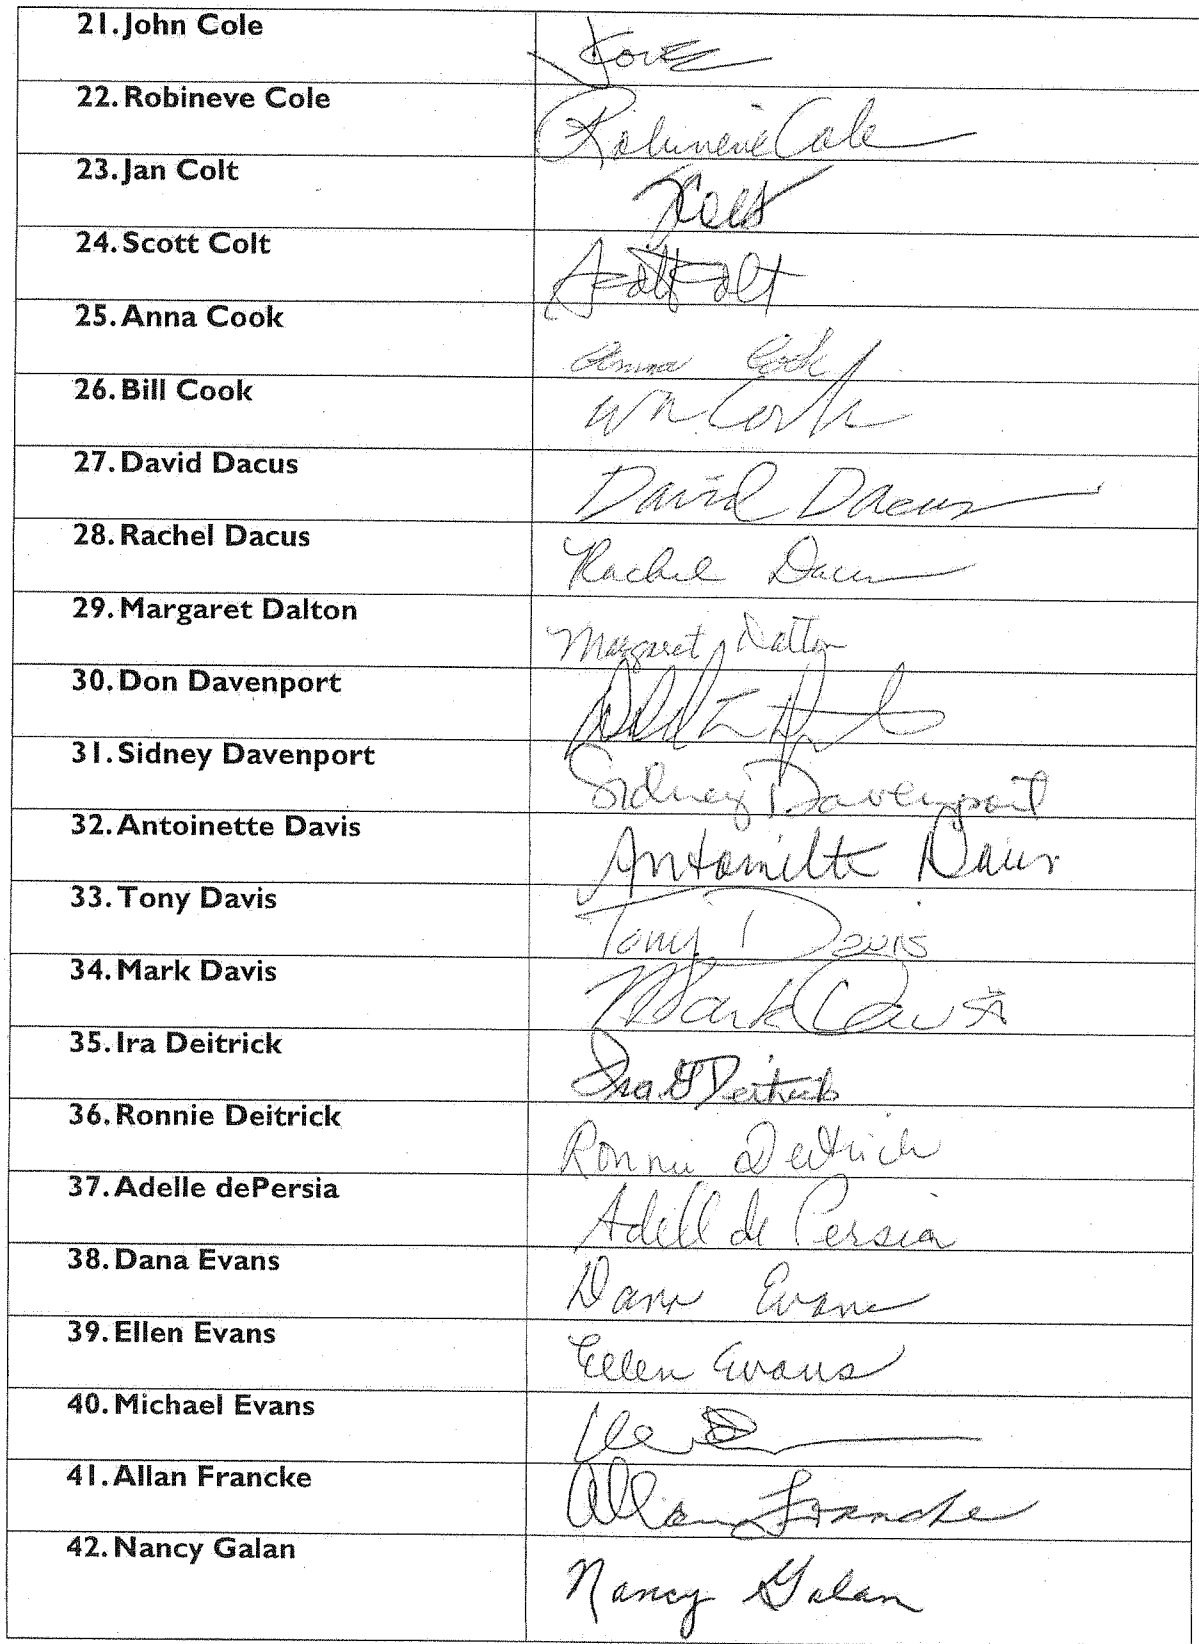 21. John Cole
22. Robineve Cole Robineve Cole
23. Jan Colt JColt
24. Scott Colt Scott Colt
25. Anna Cook Anna Cook
26. Bill Cook Wm Cook
27. David Dacus David Dacus
28. Rachel Dacus Rachel Dacus
29. Margaret Dalton Margaret Dalton
30. Don Davenport
31. Sidney Davenport Sidney Davenport
32. Antoinette Davis Antoinette Davis
33. Tony Davis Tony Davis
34. Mark Davis Mark Davis
35. Ira Deitrick Ira G Deitrick
36. Ronnie Deitrick Ronnie Deitrick
37. Adelle dePersia Adelle de Persia
38. Dana Evans Dana Evans
39. Ellen Evans Ellen Evans
40. Michael Evans
41. Allan Francke Allan Francke
42. Nancy Galan Nancy Galan